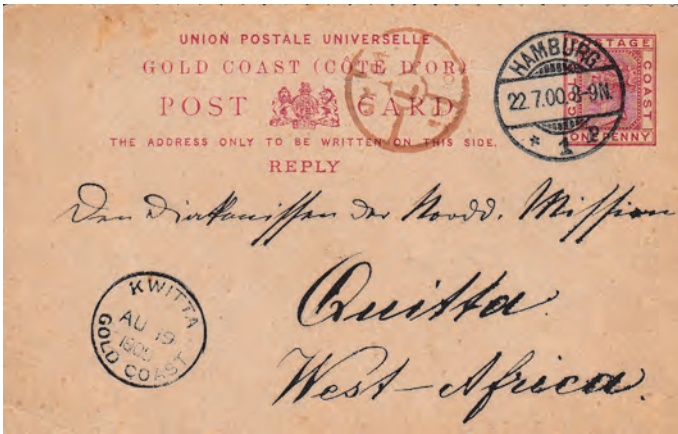 UNION POSTALE UNIVERSELLE
GOLD COAST (CÔTE D'OR)
POST CARD
THE ADDRESS ONLY TO BE WRITTEN ON THIS SIDE.
REPLY
HAMBURG
22.7.00.8-9N.
* 1 P
POSTAGE
GOLD COAST
ONE PENNY
Den Diakonissen der Nordd. Mission
Quitta.
West-Africa.
KWITTA
AU 19
1900
GOLD COAST